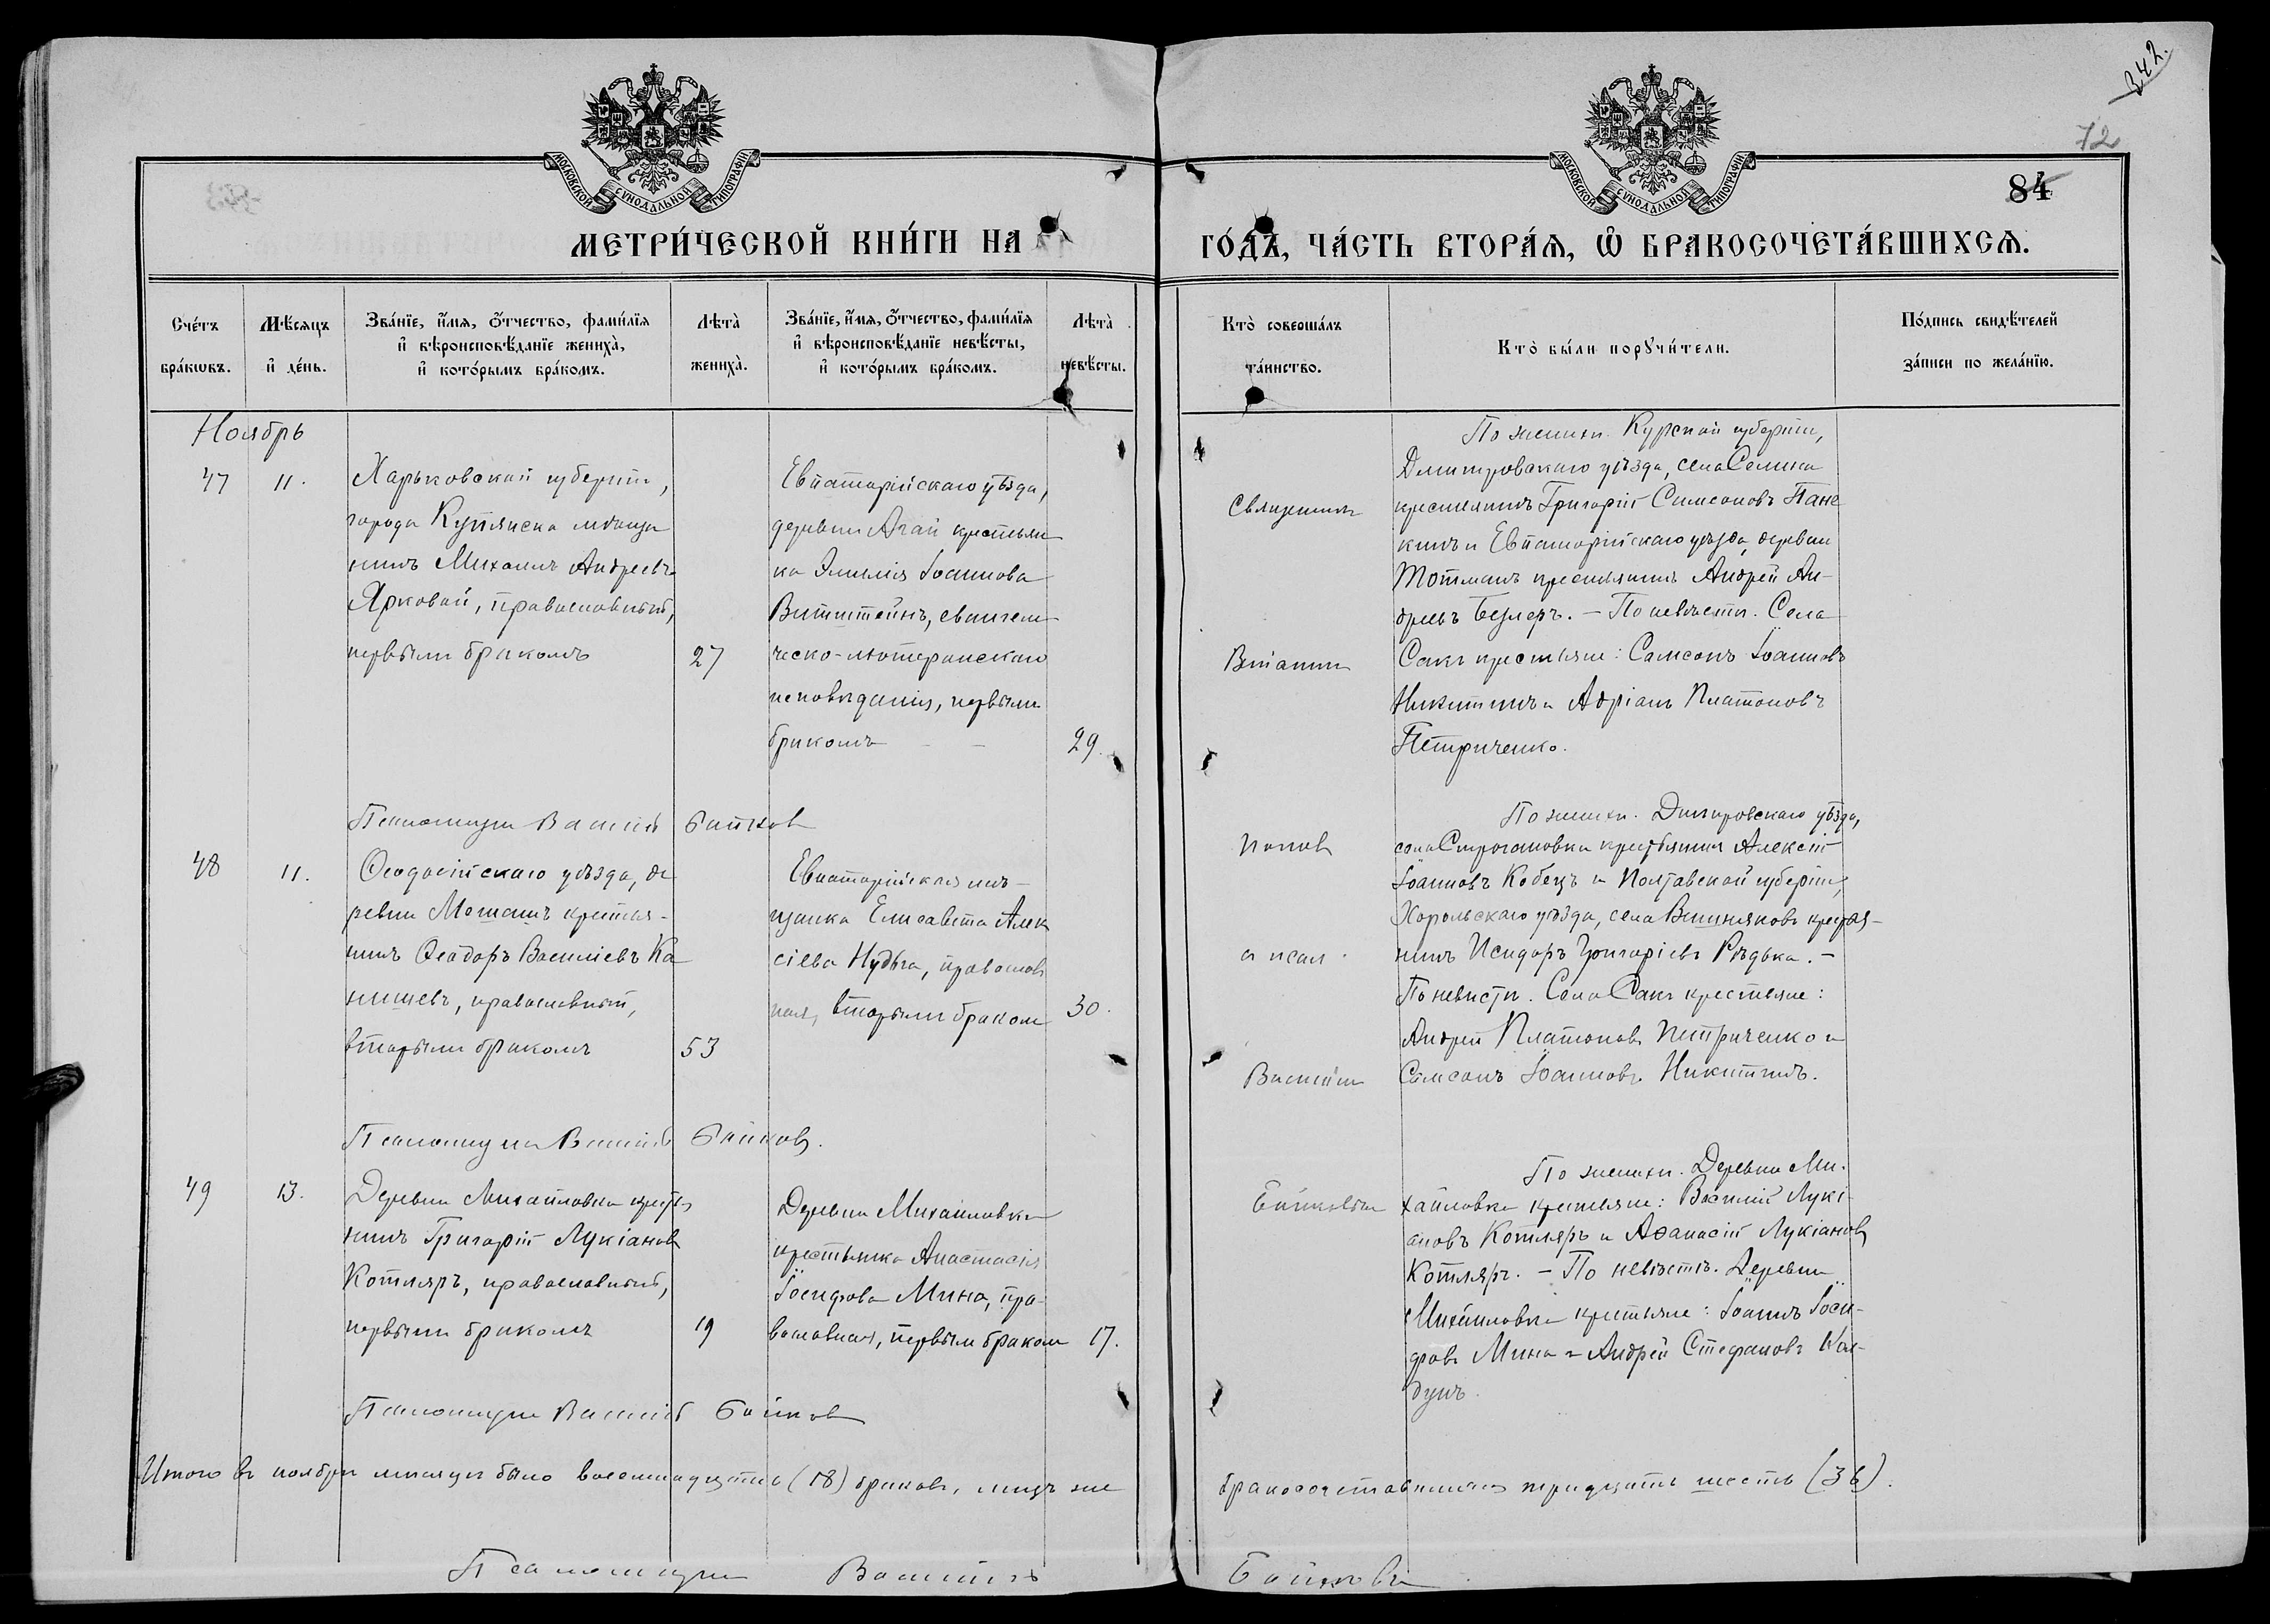 342.
72
84
МОСКОВСКОЙ СУНОДАЛЬНОЙ ТИПОГРАФІИ
МОСКОВСКОЙ СУНОДАЛЬНОЙ ТИПОГРАФІИ
МЕТРИ́ЧЕСКОЙ КНИ́ГИ НА
ГО́ДЪ, ЧА́СТЬ ВТОРА́Ѧ, Ѽ БРАКОСОЧЕТА́ВШИХСѦ.
Сче́тъ бра́кѡвъ.
Мѣ́сяцъ и҆ де́нь.
Зва́нїе, и҆́мя, ѻ҆́тчество, фами́лїя
и҆ вѣроисповѣ́данїе жениха̀,
и҆ кото́рымъ бра́комъ.
Лѣта̀ жениха̀.
Зва́нїе, и҆́мя, ѻ҆́тчество, фами́лїя
и҆ вѣроисповѣ́данїе невѣ́сты,
и҆ кото́рымъ бра́комъ.
Лѣта̀ невѣ́сты.
Кто̀ соверша́лъ та́инство.
Кто̀ бы́ли порꙋчи́тели.
По́дпись свидѣ́телей
за́писи по жела́нїю.
Ноябрь
47
11.
Харьковской губерніи,
города Купянска мѣща
нинъ Михаилъ Андреевъ
Ярковой, православный,
первымъ бракомъ
27
Евпаторійскаго уѣзда,
деревни Агай крестьян
ка Эмилія Іоаннова
Витштейнъ, евангели
ческо-лютеранскаго
исповѣданія, первымъ
бракомъ - -
29.
Священникъ
По женихѣ. Курской губерніи,
Дмитровскаго уѣзда, села Селина
крестьянинъ Григорій Симеоновъ Пане
кинъ и Евпаторійскаго уѣзда, деревни
Тотманъ крестьянинъ Андрей Ан-
дреевъ Безлеръ. - По невѣстѣ. Села
Саки крестьяне: Самсонъ Іоанновъ
Никитинъ и Адріанъ Платоновъ
Петриченко.
Псаломщикъ Василій Байков
48
11.
Ѳеодосійскаго уѣзда, де
ревни Мошашъ крестья-
нинъ Ѳеодоръ Василіевъ Ка
нишевъ, православный,
вторымъ бракомъ
53
Евпаторійская мѣ-
щанка Елисавета Алек
сіева Нудьга, православ
ная, вторымъ бракомъ
30.
Попов
и псал.
Василій
По женихѣ. Днѣпровскаго уѣзда,
села Строгановки крестьянинъ Алексій
Іоанновъ Кобецъ и Полтавской губерніи,
Хорольскаго уѣзда, села Вишняковъ крестья-
нинъ Исидоръ Григоріевъ Рѣдька. -
По невѣстѣ. Села Саки крестьяне:
Андрей Платоновъ Петриченко и
Самсонъ Іоанновъ Никитинъ.
Псаломщикъ Василій Байков.
49
13.
Деревни Михайловки крестья
нинъ Григорій Лукіановъ
Котляръ, православный,
первымъ бракомъ
19
Деревни Михайловки
крестьянка Анастасія
Іосифова Мина, пра-
вославная, первымъ бракомъ
17.
Байковъ
По женихѣ. Деревни Ми-
хайловки крестьяне: Василій Лукі-
ановъ Котляръ и Аѳанасій Лукіановъ
Котляръ. - По невѣстѣ. Деревни
Михайловки крестьяне: Іоаннъ Іоси-
фовъ Мина и Андрей Стефановъ Кол-
дунъ.
Псаломщикъ Василій Байков
Итого въ ноябрѣ мѣсяцѣ было восемнадцать (18) браковъ, лицъ же
бракосочетавшихся тридцать шесть (36).
Псаломщикъ Василій Байковъ